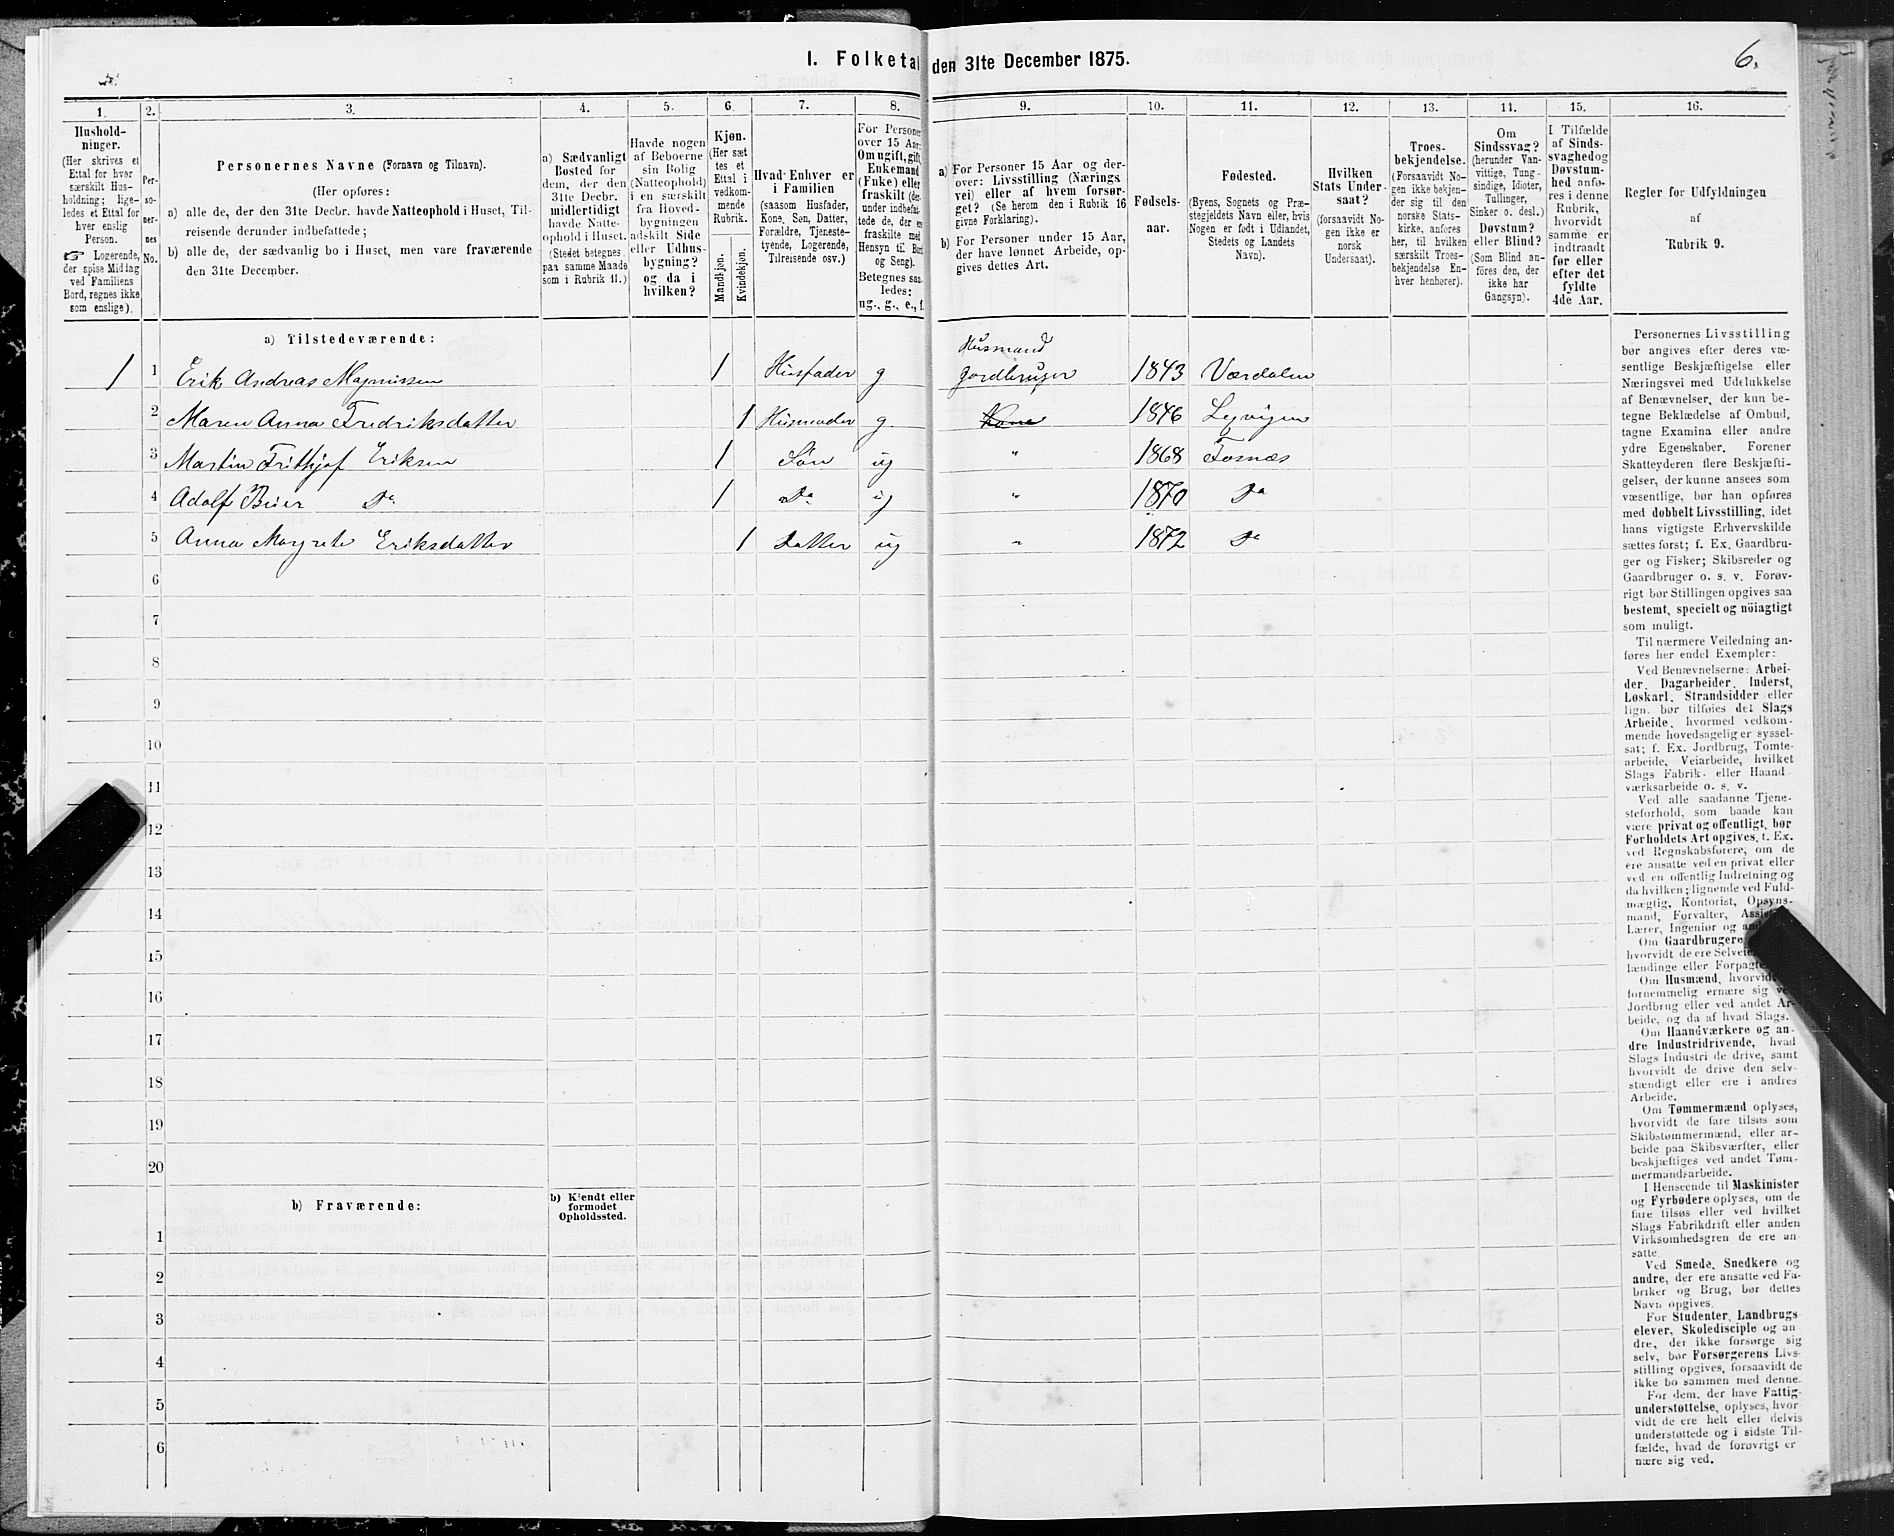 I. Folketal den 31te December 1875.
6.
1. 2. 3. 4. 5. 6. 7. 8. 9. 10. 11. 12. 13. 14. 15. 16.
Hushold-
ninger.
(Her skrives et
Ettal for hver
særskilt Hus-
holdning; lige-
ledes et Ettal for
hver enslig
Person.
☞ Logerende,
der spise Middag
ved Familiens
Bord, regnes ikke
som enslige).
Per-
so-
ner-
nes
No.
Personernes Navne (Fornavn og Tilnavn).
(Her opføres:
a) alle de, der den 31te Decbr. havde Natteophold i Huset, Til-
reisende derunder indbefattede;
b) alle de, der sædvanlig bo i Huset, men vare fraværende
den 31te December.
a) Sædvanligt
Bosted for
dem, der den
31te Decbr.
midlertidigt
havde Natte-
ophold i Huset.
(Stedet betegnes
paa samme Maade
som i Rubrik 11.)
Havde nogen
af Beboerne
sin Bolig
(Natteophold)
i en særskilt
fra Hoved-
bygningen
adskilt Side
eller Udhus-
bygning?
og da i
hvilken?
Kjøn.
(Her sæt
tes et
Ettal i
vedkom-
mende
Rubrik.
Mandkjøn.
Kvindekjøn.
Hvad Enhver er
i Familien
(saasom Husfader,
Kone, Søn, Datter,
Forældre, Tjeneste-
tyende, Logerende,
Tilreisende osv.)
For Personer
over 15 Aar:
Om ugift, gift,
Enkemand
(Enke) eller
fraskilt (der-
under indbefat-
tede de, der ere
fraskilte med
Hensyn til Bord
og Seng).
Betegnes saa-
ledes:
ug., g., e., f.
a) For Personer 15 Aar og der-
over: Livsstilling (Nærings
vei) eller af hvem forsør-
get? (Se herom den i Rubrik 16
givne Forklaring).
b) For Personer under 15 Aar,
der have lønnet Arbeide, op-
gives dettes Art.
Fødsels-
aar.
Fødested.
(Byens, Sognets og Præ-
stegjeldets Navn eller, hvis
Nogen er født i Udlandet,
Stedets og Landets
Navn).
Hvilken
Stats Under-
saat?
(forsaavidt No-
gen ikke er
norsk
Undersaat).
Troes-
bekjendelse.
(Forsaavidt No-
gen ikke bekjen-
der sig til den
norske Stats-
kirke, anføres
her, til hvilken
særskilt Troes-
bekjendelse En-
hver henhører).
Om
Sindssvag?
(herunder Van-
vittige, Tung-
sindige, Idioter,
Tullinger,
Sinker o. desl.)
Døvstum?
eller Blind?
(Som Blind an-
føres den, der
ikke har
Gangsyn).
I Tilfælde
af Sinds-
svaghed og
Døvstum-
hed anfø-
res i denne
Rubrik,
hvorvidt
samme er
indtraadt
før eller
efter det
fyldte
4de Aar.
Regler for Udfyldningen
af
Rubrik 9.
a) Tilstedeværende:
Husmand
1 1 Erik Andreas Magnussen 1 Husfader g Jordbruger 1843 Værdalen
2 Maren Anna Fredriksdatter 1 Husmoder g Kone 1846 Lexvigen
3 Martin Frithjof Eriksen 1 Søn ug " 1868 Fosnæs
4 Adolf Beier Do 1 Do ug " 1870 Do
5 Anna Margrete Eriksdatter 1 Datter ug " 1872 Do
6
7
8
9
10
11
12
13
14
15
16
17
18
19
20
b) Fraværende:
b) Kjendt eller
formodet
Opholdssted.
1
2
3
4
5
6
Personernes Livsstilling
bør angives efter deres væ-
sentlige Beskjæftigelse eller
Næringsvei med Udelukkelse
af Benævnelser, der kun be-
tegne Beklædelse af Ombud,
tagne Examina eller andre
ydre Egenskaber. Forener
Skatteyderen flere Beskjæfti-
gelser, der kunne ansees som
væsentlige, bør han opføres
med dobbelt Livsstilling, idet
hans vigtigste Erhvervskilde
sættes først; f. Ex. Gaardbru-
ger og Fisker; Skibsreder og
Gaardbruger o. s. v. Forøv-
rigt bør Stillingen opgives saa
bestemt, specielt og nöiagtigt
som muligt.
Til nærmere Veiledning an-
føres her endel Exempler:
Ved Benævnelserne: Arbei-
der, Dagarbeider, Inderst,
Løskarl, Strandsidder eller
lign. bør tilføies det Slags
Arbeide, hvormed vedkom-
mende hovedsagelig er syssel-
sat; f. Ex. Jordbrug, Tomte-
arbeide, Veiarbeide, hvilket
Slags Fabrik- eller Haand-
værksarbeide o. s. v.
Ved alle saadanne Tjene-
steforhold, som baade kan
være privat og offentligt, bør
Forholdets Art opgives, t. Ex.
ved Regnskabsførere, om de
ere ansatte ved en privat eller
ved en offentlig Indretning og
da hvilken; lignende ved Fuld-
mægtig, Kontorist, Opsyns-
mand, Forvalter,
Lærer, Ingeniør og
Om Gaardbrugere,
hvorvidt de ere
lændinge eller
Om Husmænd,
fornemmelig ernære sig
Jordbrug eller ved andet Ar-
beide, og da af hvad Slags.
Om Haandværkere og an-
dre Industridrivende, hvad
Slags Industri de drive, samt
hvorvidt de drive den selv-
stændigt eller ere i andres
Arbeide.
Om Tømmermænd oplyses,
hvorvidt de fare tilsøs som
Skibstømmermænd, eller ar-
beide paa Skibsværfter, eller
beskjæftiges ved andet Tøm-
mermandsarbeide.
I Henseende til Maskinister
og Fyrbødere oplyses, om de
fare tilsøs eller ved hvilket
Slags Fabrikdrift eller anden
Virksomhedsgren de ere an-
satte.
Ved Smede, Snedkere og
andre, der ere ansatte ved Fa-
briker og Brug, bør dettes
Navn opgives.
For Studenter, Landbrugs-
elever, Skoledisciple og an-
dre, der ikke forsørge sig
selv, bør Forsørgerens Livs-
stilling opgives, forsaavidt de
ikke bo sammen med denne.
For dem, der have Fattig-
understøttelse, oplyses, hvor-
vidt de ere helt eller delvis
understøttede og i sidste Til-
fælde, hvad de forøvrigt er
nære sig ved.